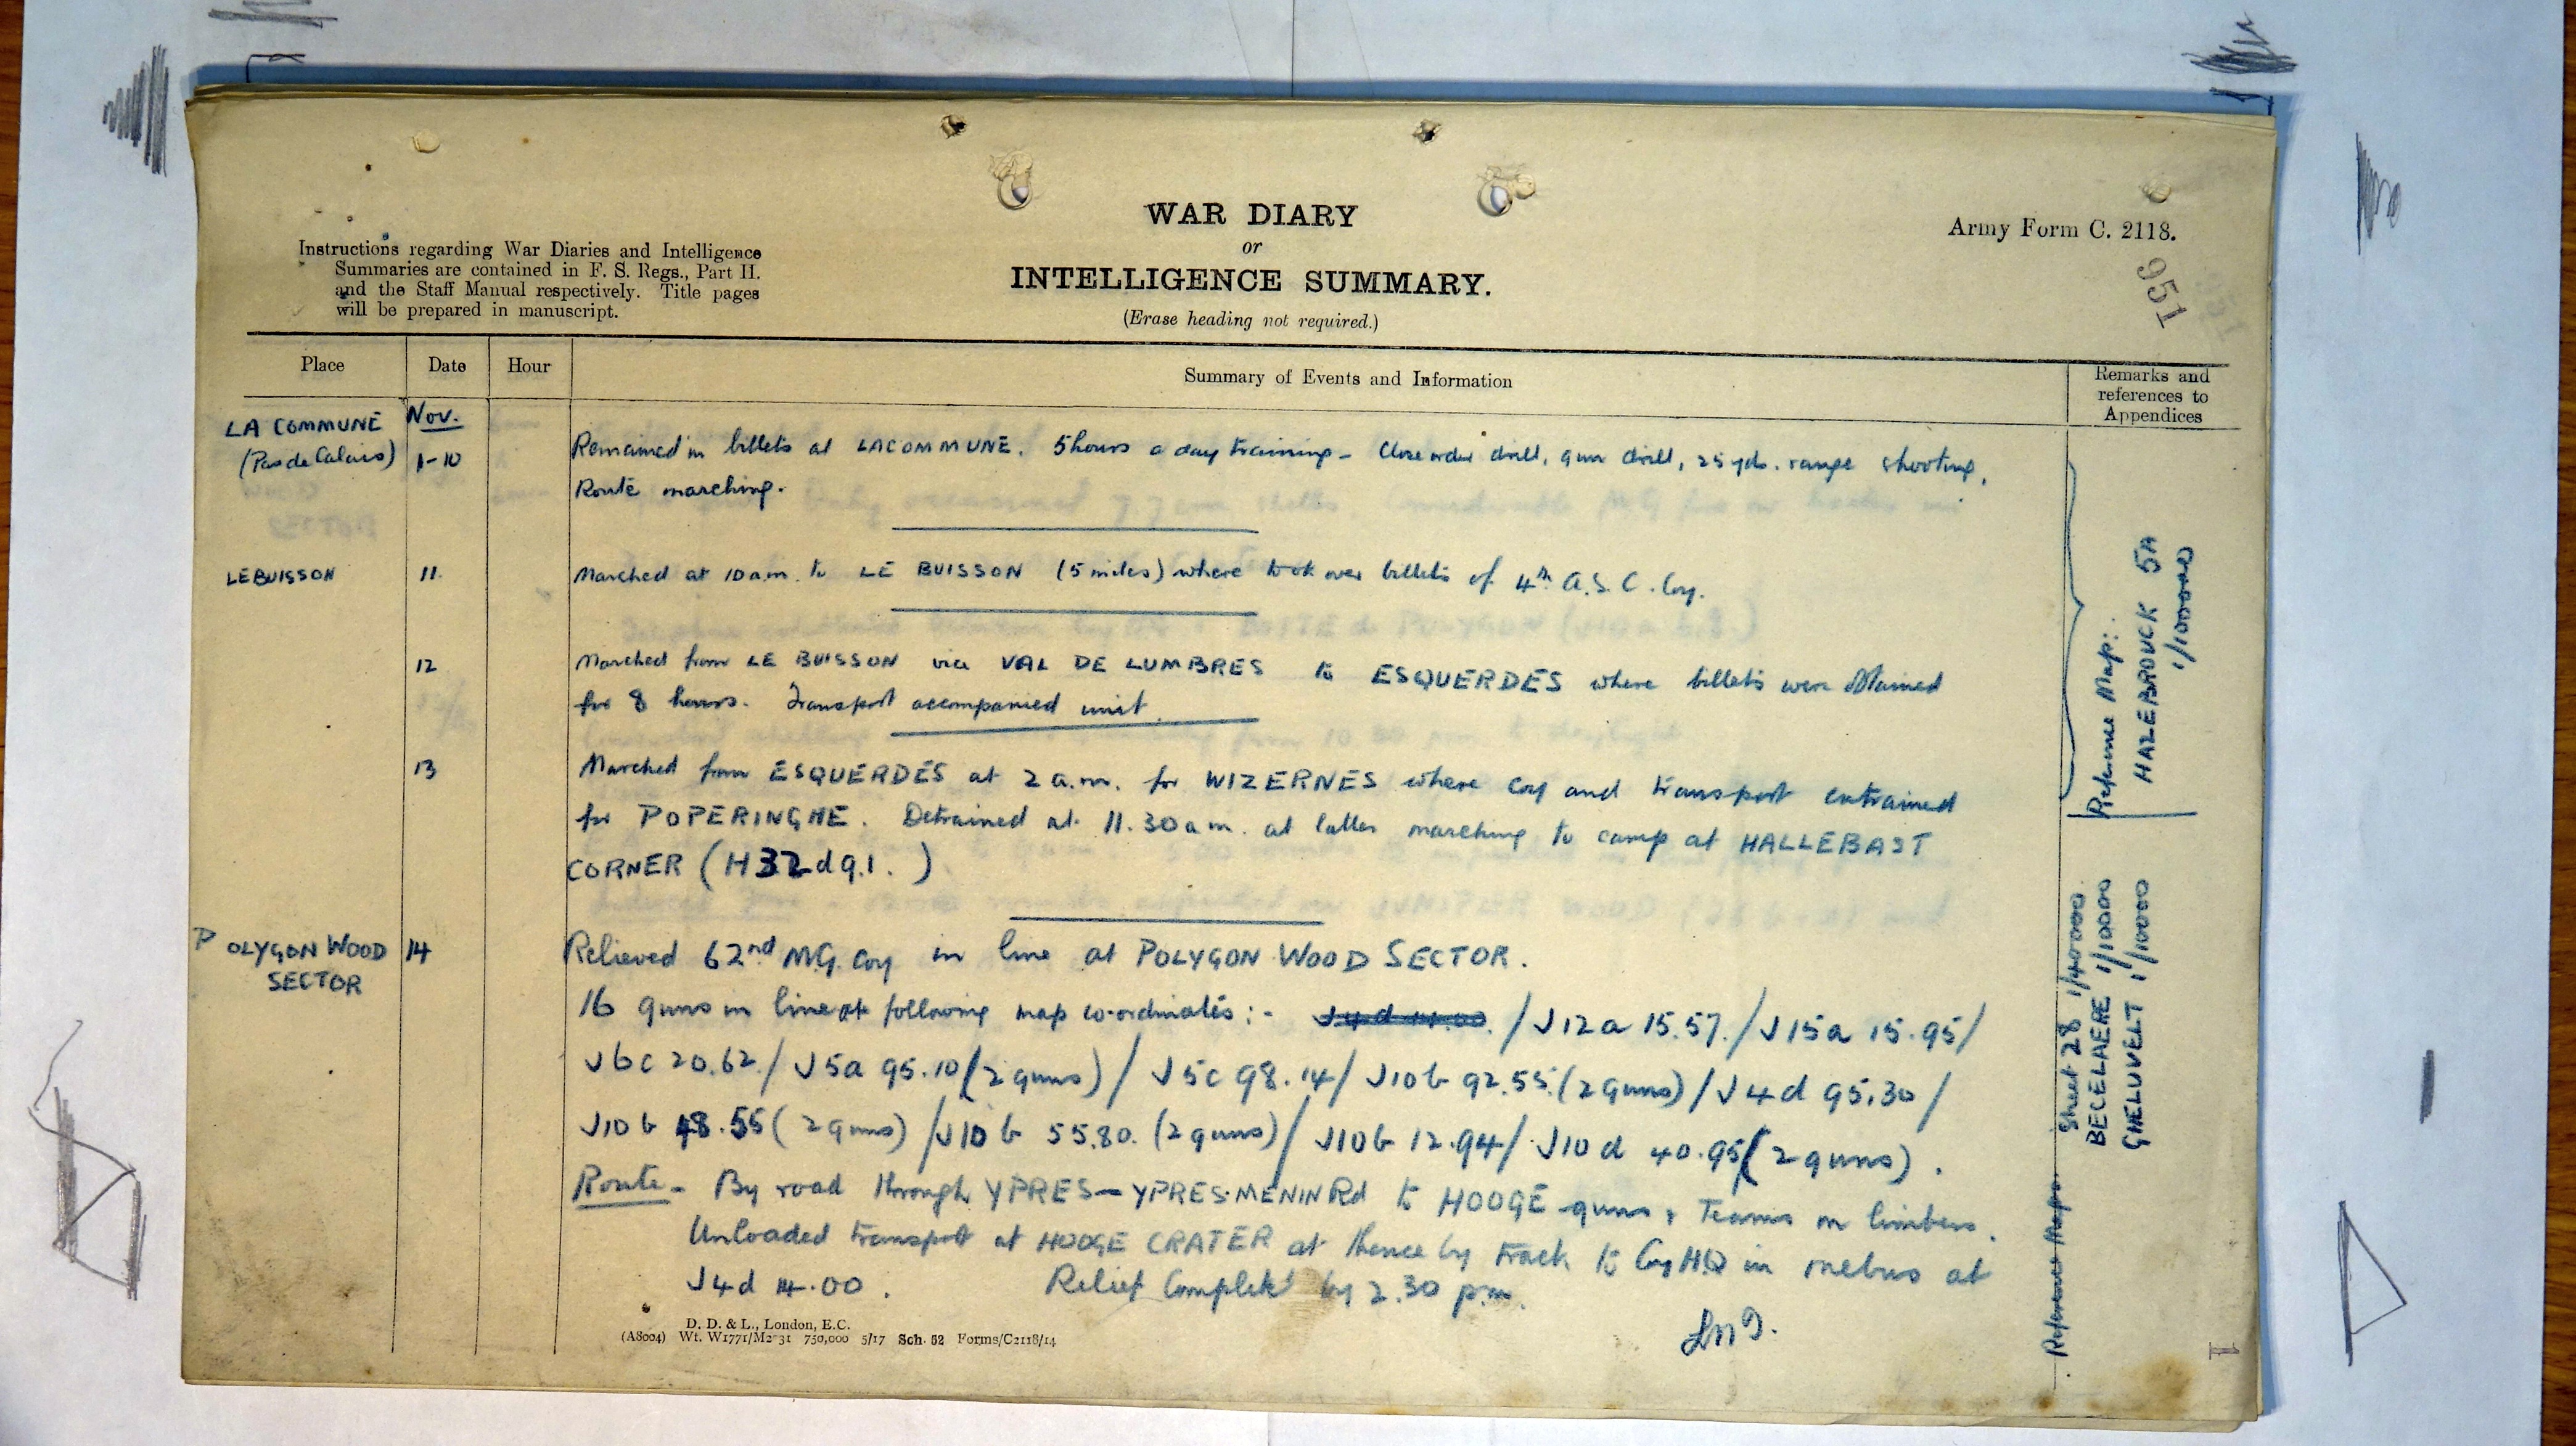 WAR DIARY
or
INTELLIGENCE SUMMARY.
(Erase heading not required.)
Army Form C. 2118.
951
Instructions regarding War Diaries and Intelligence
Summaries are contained in F. S. Regs., Part II.
and the Staff Manual respectively. Title pages
will be prepared in manuscript.
Place Date Hour Summary of Events and Information Remarks and references to Appendices
LA COMMUNE Nov.
(Pas de Calais) 1-10 Remained in billets at LACOMMUNE. 5 hours a day training - Close order drill, gun drill, 25 yds. range shooting,
Route marching.
LE BUISSON 11. Marched at 10 a.m. to LE BUISSON (5 miles) where took over billets of 4th A.S.C. Coy.
12 Marched from LE BUISSON via VAL DE LUMBRES to ESQUERDES where billets were obtained
for 8 hours. Transport accompanied unit.
13 Marched from ESQUERDES at 2 a.m. for WIZERNES where coy and transport entrained
for POPERINGHE. Detrained at 11.30 a.m. at latter marching to camp at HALLEBAST
CORNER (H 32 d 9.1. )
POLYGON WOOD 14 Relieved 62nd M.G. Coy in line at POLYGON WOOD SECTOR.
SECTOR
16 guns in line at following map co-ordinates :- J4d 14.00. / J12a 15.57. / J15a 15.95 /
J6c 20.62. / J5a 95.10 (2 guns) / J5c 98.14 / J10b 92.55. (2 guns) / J4d 95.30 /
J10b 48.55 (2 guns) / J10b 55.80. (2 guns) / J10b 12.94 / J10d 40.95 (2 guns) .
Route - By road through YPRES - YPRES-MENIN Rd to HOOGE - guns & Teams on limbers.
Unloaded transport at HOOGE CRATER at thence by track to Coy HQ in mebus at
J4d 14.00 . Relief Complete by 2.30 p.m.
Reference Map:.
HAZEBROUCK 5A
1/100000
Reference Maps.
Sheet 28 1/40000.
BECELAERE 1/10000
GHELUVELT 1/10000
D. D. & L., London, E.C.
(A8004) Wt. W1771/M2731 750,000 5/17 Sch. 52 Forms/C2118/14
1